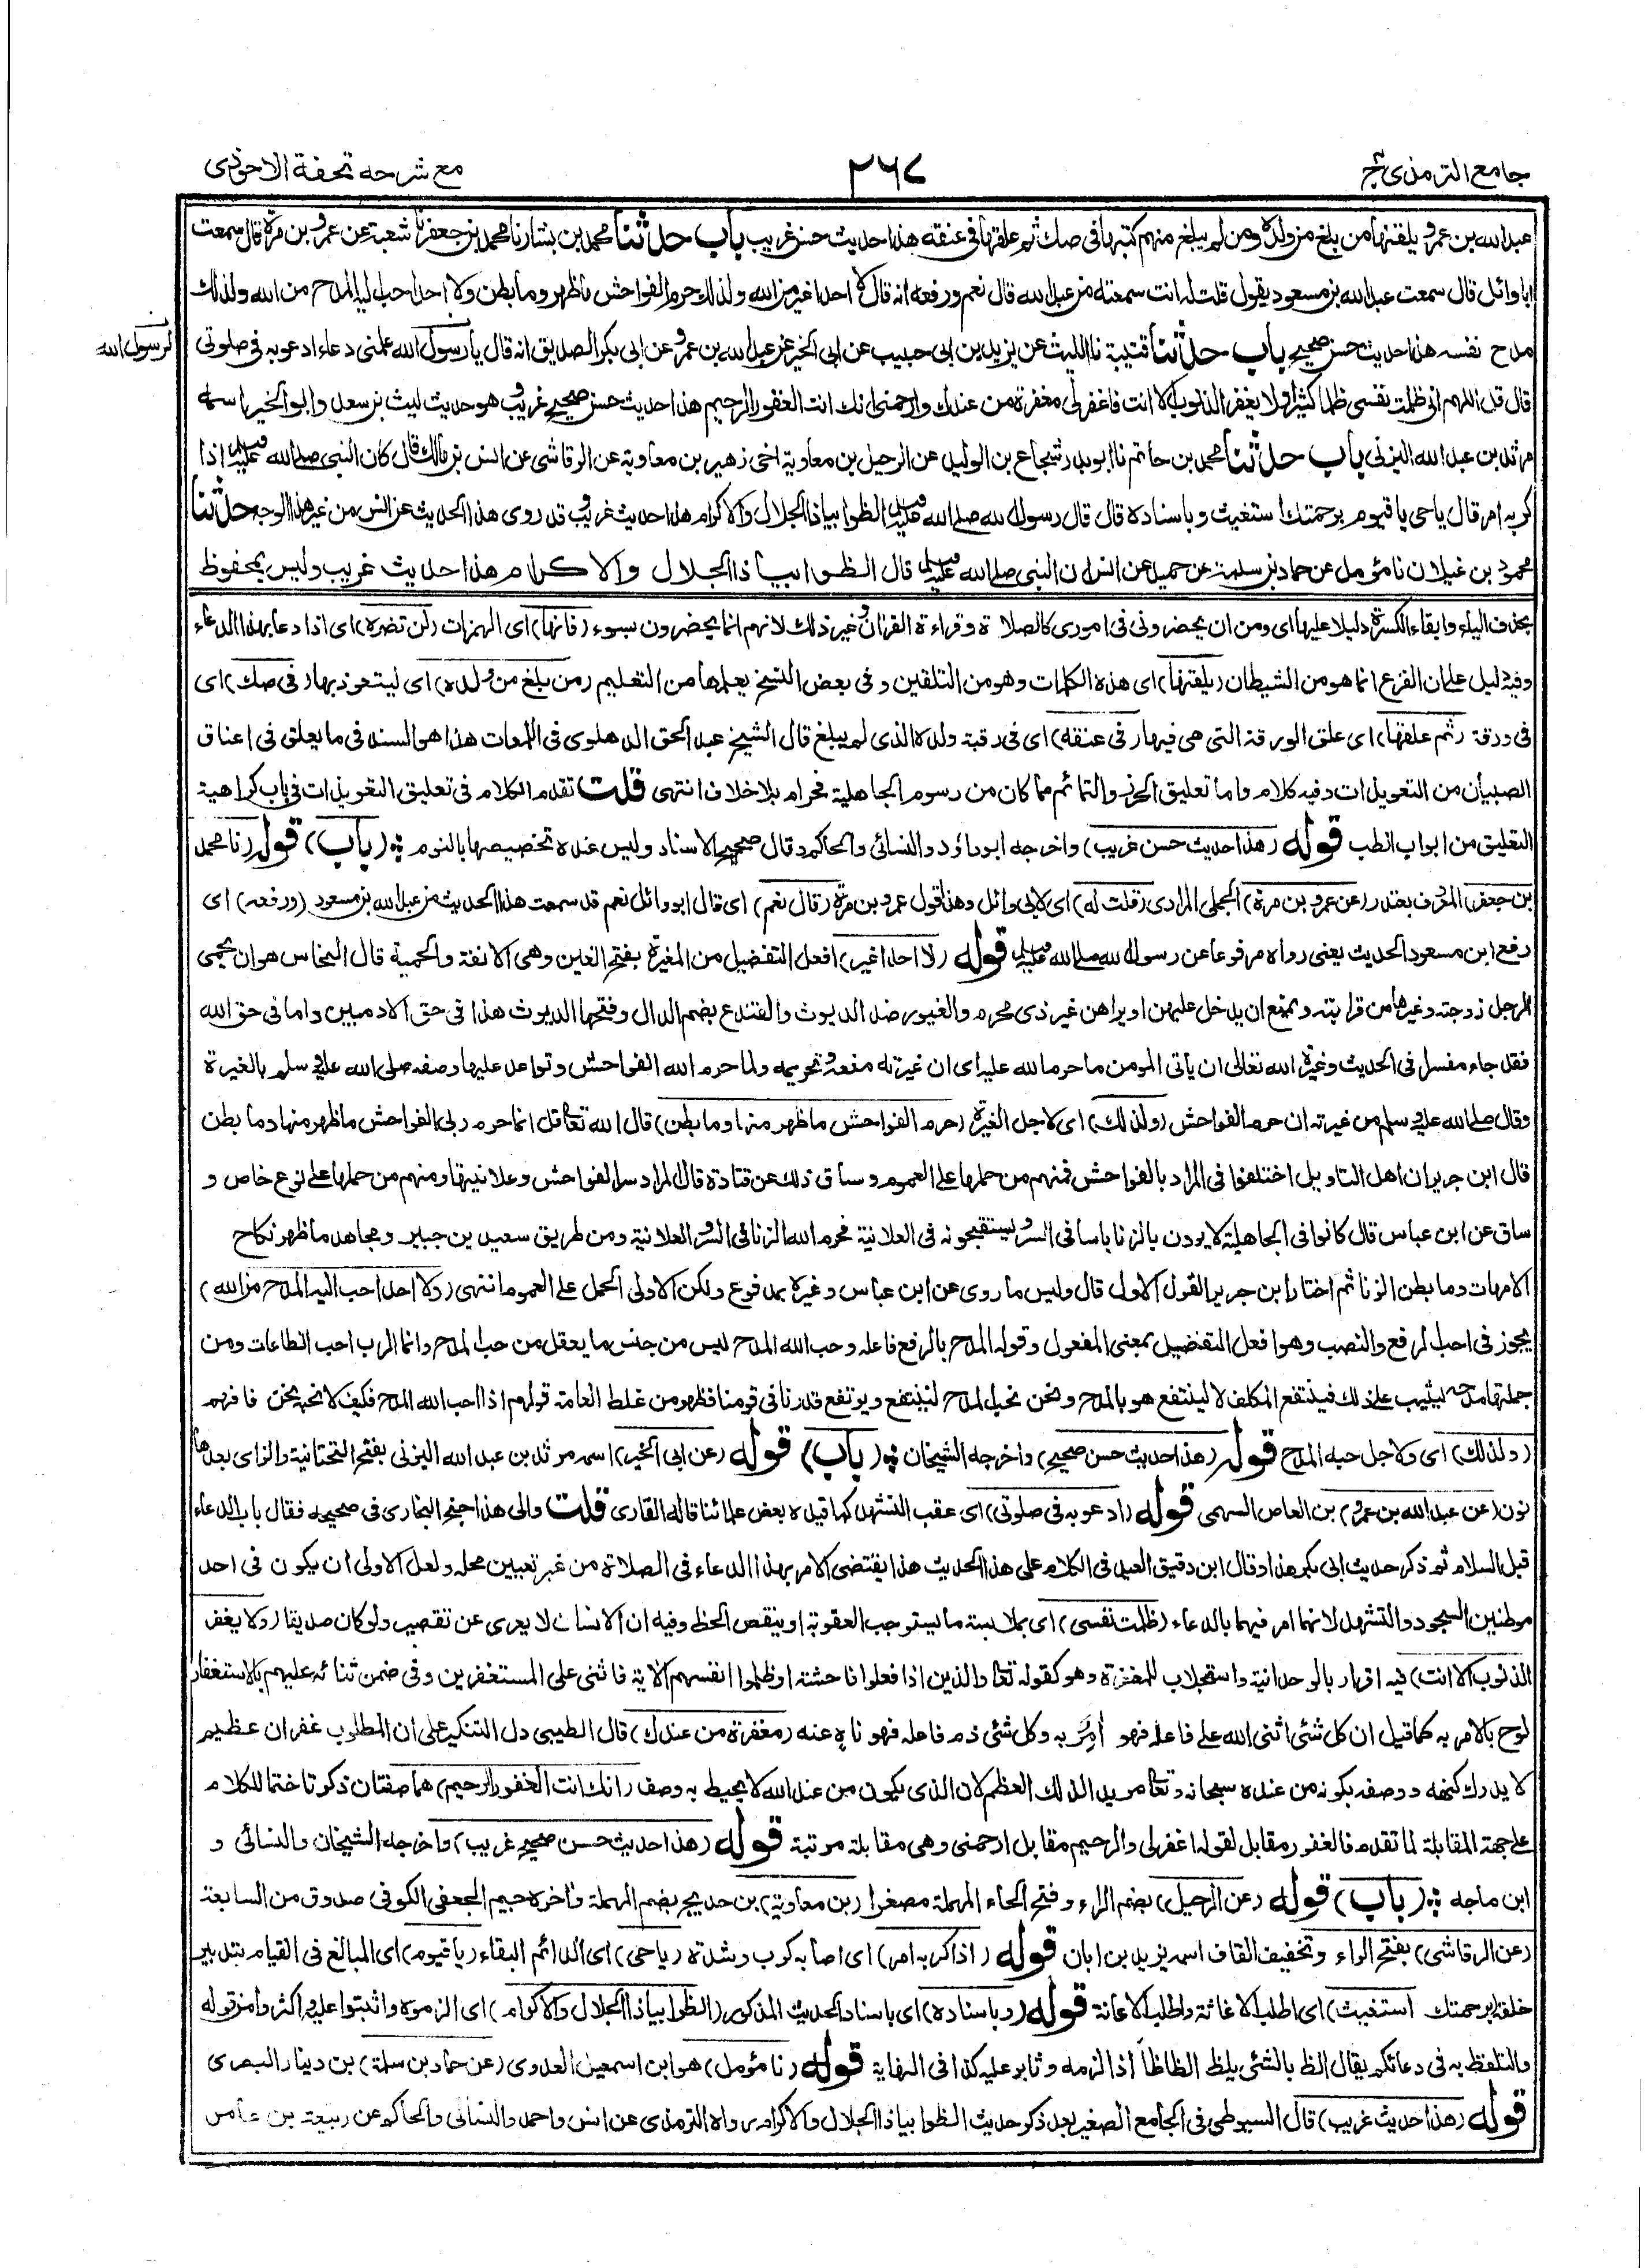 جامع الترمذی ج۴
۲۶۷
مع شرحه تحفة الاحوذی
عبدالله بن عمرو يلقنها من بلغ من ولده ومن لم يبلغ منهم كتبها فى صك ثم علقها فى عنقه هذا حديث حسن غريب باب حدثنا محمد بن بشار نا محمد بن جعفر نا شعبة عن عمرو بن مرة قال سمعت
ابا وائل قال سمعت عبدالله بن مسعود يقول قلت له انت سمعته من عبدالله قال نعم ورفعه انه قال لا احد اغير من الله ولذلك حرم الفواحش ما ظهر وما بطن ولا احد احب اليه المدح من الله ولذلك
مدح نفسه هذا حديث حسن صحيح باب حدثنا قتيبة نا الليث عن يزيد بن ابى حبيب عن ابى الخير عن عبدالله بن عمرو عن ابى بكر الصديق انه قال يا رسول الله علمنى دعاء ادعو به فى صلوتى
لرسول الله
قال قل اللهم انى ظلمت نفسى ظلما كثيرا ولا يغفر الذنوب الا انت فاغفرلى مغفرة من عندك وارحمنى انك انت الغفور الرحيم هذا حديث حسن صحيح غريب وهو حديث ليث بن سعد وابو الخير اسمه
مرثد بن عبد الله اليزنى باب حدثنا محمد بن حاتم نا ابو بدر شجاع بن الوليد عن الرحيل بن معاوية اخى زهير بن معاوية عن الرقاشى عن انس بن مالك قال كان النبى صلى الله عليه وسلم اذا
كربه امر قال ياحى يا قيوم برحمتك استغيث وباسناده قال قال رسول الله صلى الله عليه وسلم الظوا بياذا الجلال والاكرام هذا حديث غريب وقد روى هذا الحديث عن انس من غير هذا الوجه حدثنا
محمود بن غيلان نا مؤمل عن حماد بن سلمة عن حميد عن انس ان النبى صلى الله عليه وسلم قال الظوا بياذا الجلال والاكرام هذا حديث غريب وليس بمحفوظ
بحذف الياء وابقاء الكسرة دليلا عليها اى ومن ان يحضرونى فى امورى كالصلاة وقراءة القران وغير ذلك لانهم انما يحضرون بسوء (فانها) اى الهمزات (لن تضره) اى اذا دعا بهذا الدعاء
وفيه دليل على ان الفزع انما هو من الشيطان (يلقنها) اى هذه الكلمات وهو من التلقين وفى بعض النسخ يعلمها من التعليم (من بلغ من ولده) اى ليتعوذ بها (فى صك) اى
فى ورقة (ثم علقها) اى علق الورقة التى هى فيها (فى عنقه) اى فى رقبة ولده الذى لم يبلغ قال الشيخ عبد الحق الدهلوى فى اللمعات هذا هو السند فى ما يعلق فى اعناق
الصبيان من التعويذات وفيه كلام واما تعليق الحرز والتمائم مما كان من رسوم الجاهلية فحرام بلا خلاف انتهى قلت تقدم الكلام فى تعليق التعويذات فى باب كراهية
التعليق من ابواب الطب قوله (هذا حديث حسن غريب) واخرجه ابوداؤد والنسائى والحاكم وقال صحيح الاسناد وليس عنده تخصيصها بالنوم (باب) قوله (نا محمد
بن جعفر) المعروف بغندر (عن عمرو بن مرة) الجملى المرادى (قلت له) اى لابى وائل وهذا قول عمرو بن مرة (قال نعم) اى قال ابو وائل نعم قد سمعت هذا الحديث من عبد الله بن مسعود (ورفعه) اى
رفع ابن مسعود الحديث يعنى رواه مرفوعا عن رسول الله صلى الله عليه وسلم قوله (لا احد اغير) افعل التفضيل من الغيرة بفتح الغين وهى الانفة والحمية قال النحاس هو ان يحمى
الرجل زوجته وغيرها من قرابته ويمنع ان يدخل عليهن او يراهن غير ذى محرم والغيور ضد الديوث والقندع بضم الدال وفتحها الديوث هذا فى حق الادميين واما فى حق الله
فقد جاء مفسرا فى الحديث وغيرة الله تعالى ان يأتى المومن ما حرم الله عليه اى ان غيرته منعه وتحريمه ولما حرم الله الفواحش وتواعد عليها وصفه صلى الله عليه وسلم بالغيرة
وقال صلى الله عليه وسلم من غيرته ان حرم الفواحش (ولذلك) اى لاجل الغيرة (حرم الفواحش ما ظهر منها وما بطن) قال الله تعالى قل انما حرم ربى الفواحش ما ظهر منها وما بطن
قال ابن جرير ان اهل التاويل اختلفوا فى المراد بالفواحش فمنهم من حملها على العموم وساق ذلك عن قتادة قال المراد سر الفواحش وعلانيتها ومنهم من حملها على نوع خاص و
ساق عن ابن عباس قال كانوا فى الجاهلية لا يرون بالزنا باسا فى السر ويستقبحونه فى العلانية فحرم الله الزنا فى السر والعلانية ومن طريق سعيد بن جبير ومجاهد ما ظهر نكاح
الامهات وما بطن الزنا ثم اختار ابن جرير القول الاول قال وليس ما روى عن ابن عباس وغيره بمدفوع ولكن الاولى الحمل على العموم انتهى (ولا احد احب اليه المدح من الله)
يجوز فى احب الرفع والنصب وهو افعل التفضيل بمعنى المفعول وقوله المدح بالرفع فاعله وحب الله المدح ليس من جنس ما يعقل من حب المدح وانما الرب احب الطاعات ومن
جملتها مدحه ليثيب على ذلك فينتفع المكلف لا لينتفع هو بالمدح ونحن نحب المدح لننتفع ويرتفع قدرنا فى قومنا فظهر من غلط العامة قولهم اذا احب الله المدح فكيف لا نحبه نحن فافهم
(ولذلك) اى ولاجل حبه المدح قوله (هذا حديث حسن صحيح) واخرجه الشيخان (باب) قوله (عن ابى الخير) اسمه مرثد بن عبد الله اليزنى بفتح التحتانية والزاى بعدها
نون (عن عبد الله بن عمرو) بن العاص السهمى قوله (ادعو به فى صلوتى) اى عقب التشهد كما قيده بعض علمائنا قاله القارى قلت والى هذا جنح البخارى فى صحيحه فقال باب الدعاء
قبل السلام ثم ذكر حديث ابى بكر هذا وقال ابن دقيق العيد فى الكلام على هذا الحديث هذا يقتضى الامر بهذا الدعاء فى الصلاة من غير تعيين محله ولعل الاولى ان يكون فى احد
موطنين السجود والتشهد لانهما امر فيهما بالدعاء (ظلمت نفسى) اى بملابسة ما يستوجب العقوبة او ينقص الحظ وفيه ان الانسان لا يعرى عن تقصير ولو كان صديقا (ولا يغفر
الذنوب الا انت) فيه اقرار بالوحدانية واستجلاب للمغفرة وهو كقوله تعالى والذين اذا فعلوا فاحشة او ظلموا انفسهم الاية فاثنى على المستغفرين وفى ضمن ثنائه عليهم بالاستغفار
لوح بالامر به كما قيل ان كل شئ اثنى الله على فاعله فهو امر به وكل شئ ذم فاعله فهو ناه عنه (مغفرة من عندك) قال الطيبى دل التنكير على ان المطلوب غفران عظيم
لا يدرك كنهه ووصفه بكونه من عنده سبحانه وتعالى مريد الذلك العظم لان الذى يكون من عند الله لا يحيط به وصف (انك انت الغفور الرحيم) هما صفتان ذكرتا ختما للكلام
على جهة المقابلة لما تقدم فالغفور مقابل لقوله اغفرلى والرحيم مقابل ارحمنى وهى مقابلة مرتبة قوله (هذا حديث حسن صحيح غريب) واخرجه الشيخان والنسائى و
ابن ماجه (باب) قوله (عن الرحيل) بضم الراء وفتح الحاء المهملة مصغرا (بن معاوية) بن حديج بضم المهملة واخره جيم الجعفى الكوفى صدوق من السابعة
(عن الرقاشى) بفتح الراء وتخفيف القاف اسمه يزيد بن ابان قوله (اذا كربه امر) اى اصابه كرب وشدة (ياحى) اى الدائم البقاء (يا قيوم) اى المبالغ فى القيام بتدبير
خلقه (برحمتك استغيث) اى اطلب الاغاثة واطلب الاعانة قوله (وباسناده) اى باسناد الحديث المذكور (الظوا بياذا الجلال والاكرام) اى الزموه واثبتوا عليه واكثروا من قوله
والتلفظ به فى دعائكم يقال الظ بالشئ يلظ الظاظا اذا لزمه وثابر عليه كذا فى النهاية قوله (نا مؤمل) هو ابن اسمعيل العدوى (عن حماد بن سلمة) بن دينار البصرى
قوله (هذا حديث غريب) قال السيوطى فى الجامع الصغير بعد ذكر حديث الظوا بياذا الجلال والاكرام رواه الترمذى عن انس واحمد والنسائى والحاكم عن ربيعة بن عامر